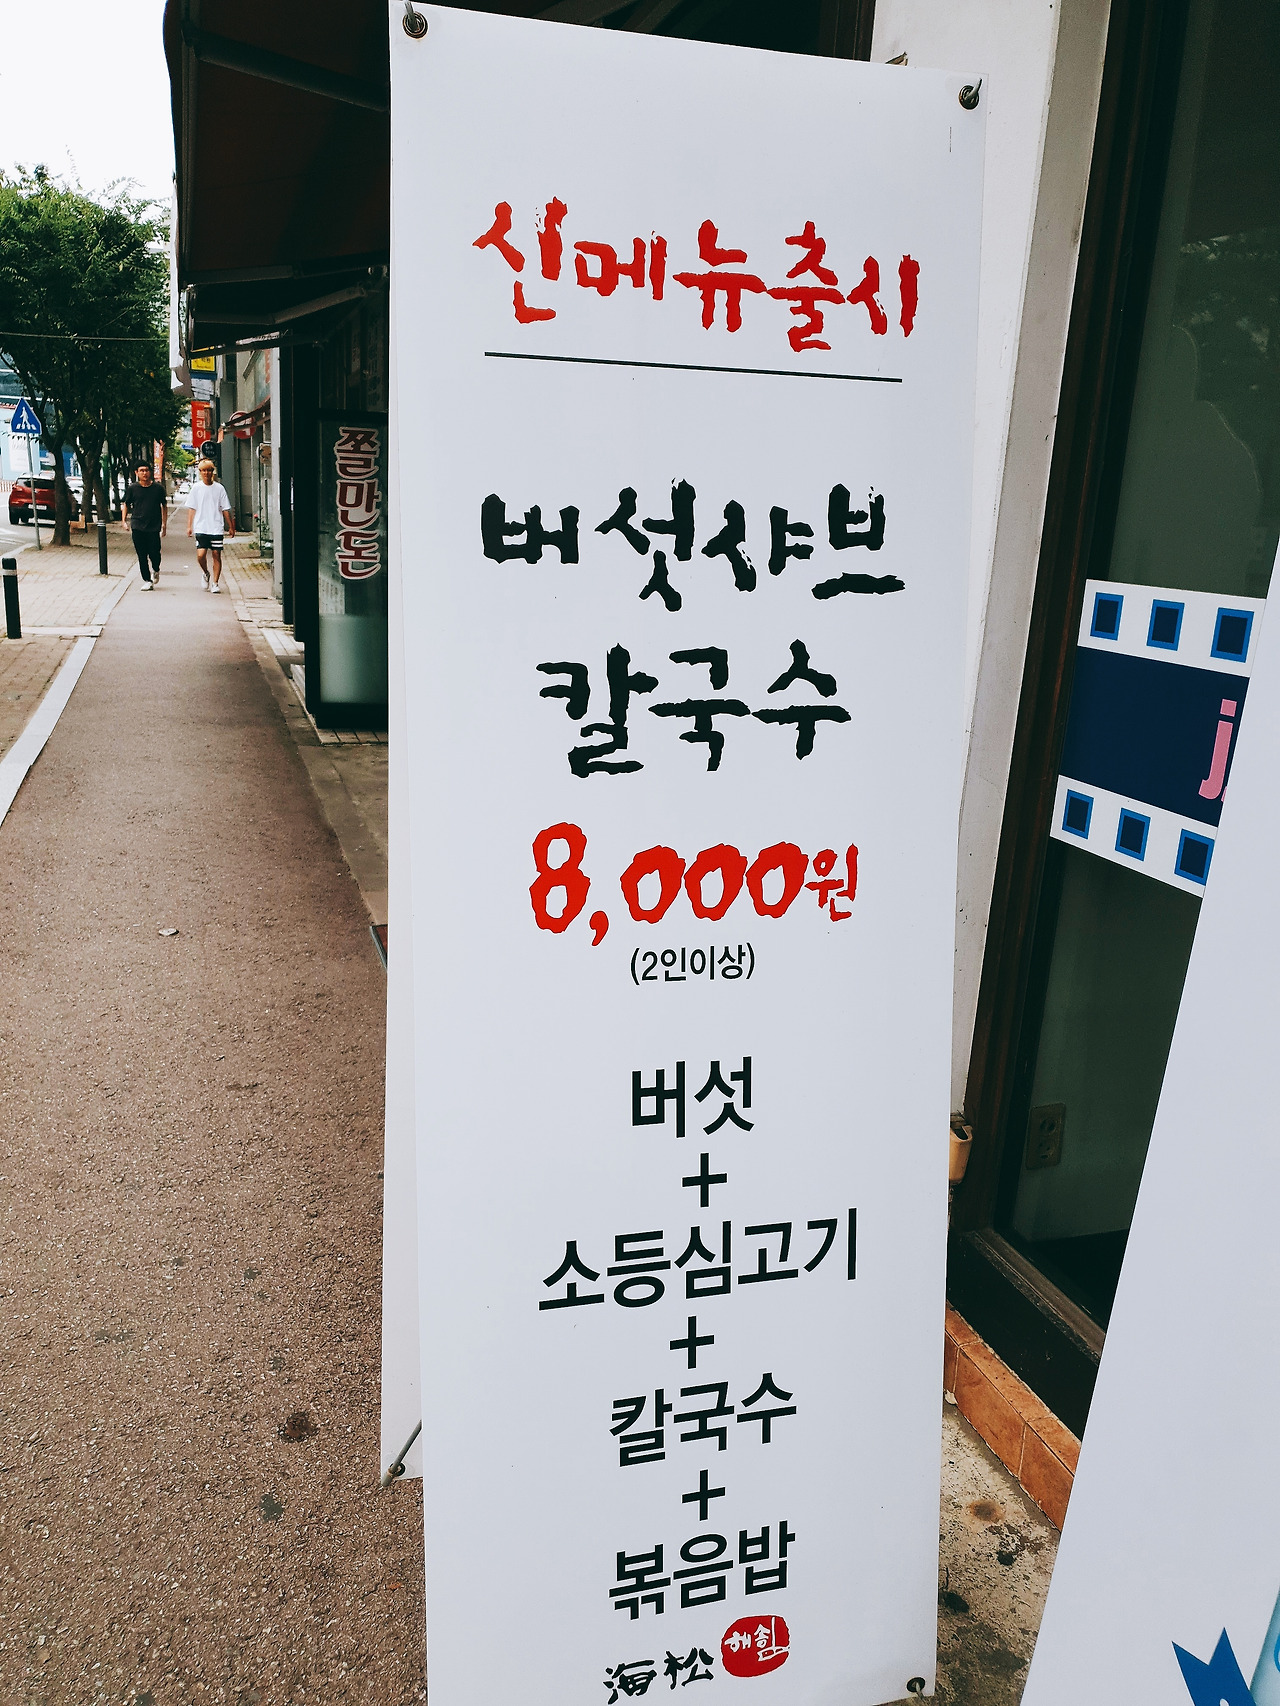 신메뉴출시
버섯샤브
칼국수
8,000원
(2인이상)
버섯
+
소등심고기
+
칼국수
+
볶음밥
海松
해송
쫄만돈
j